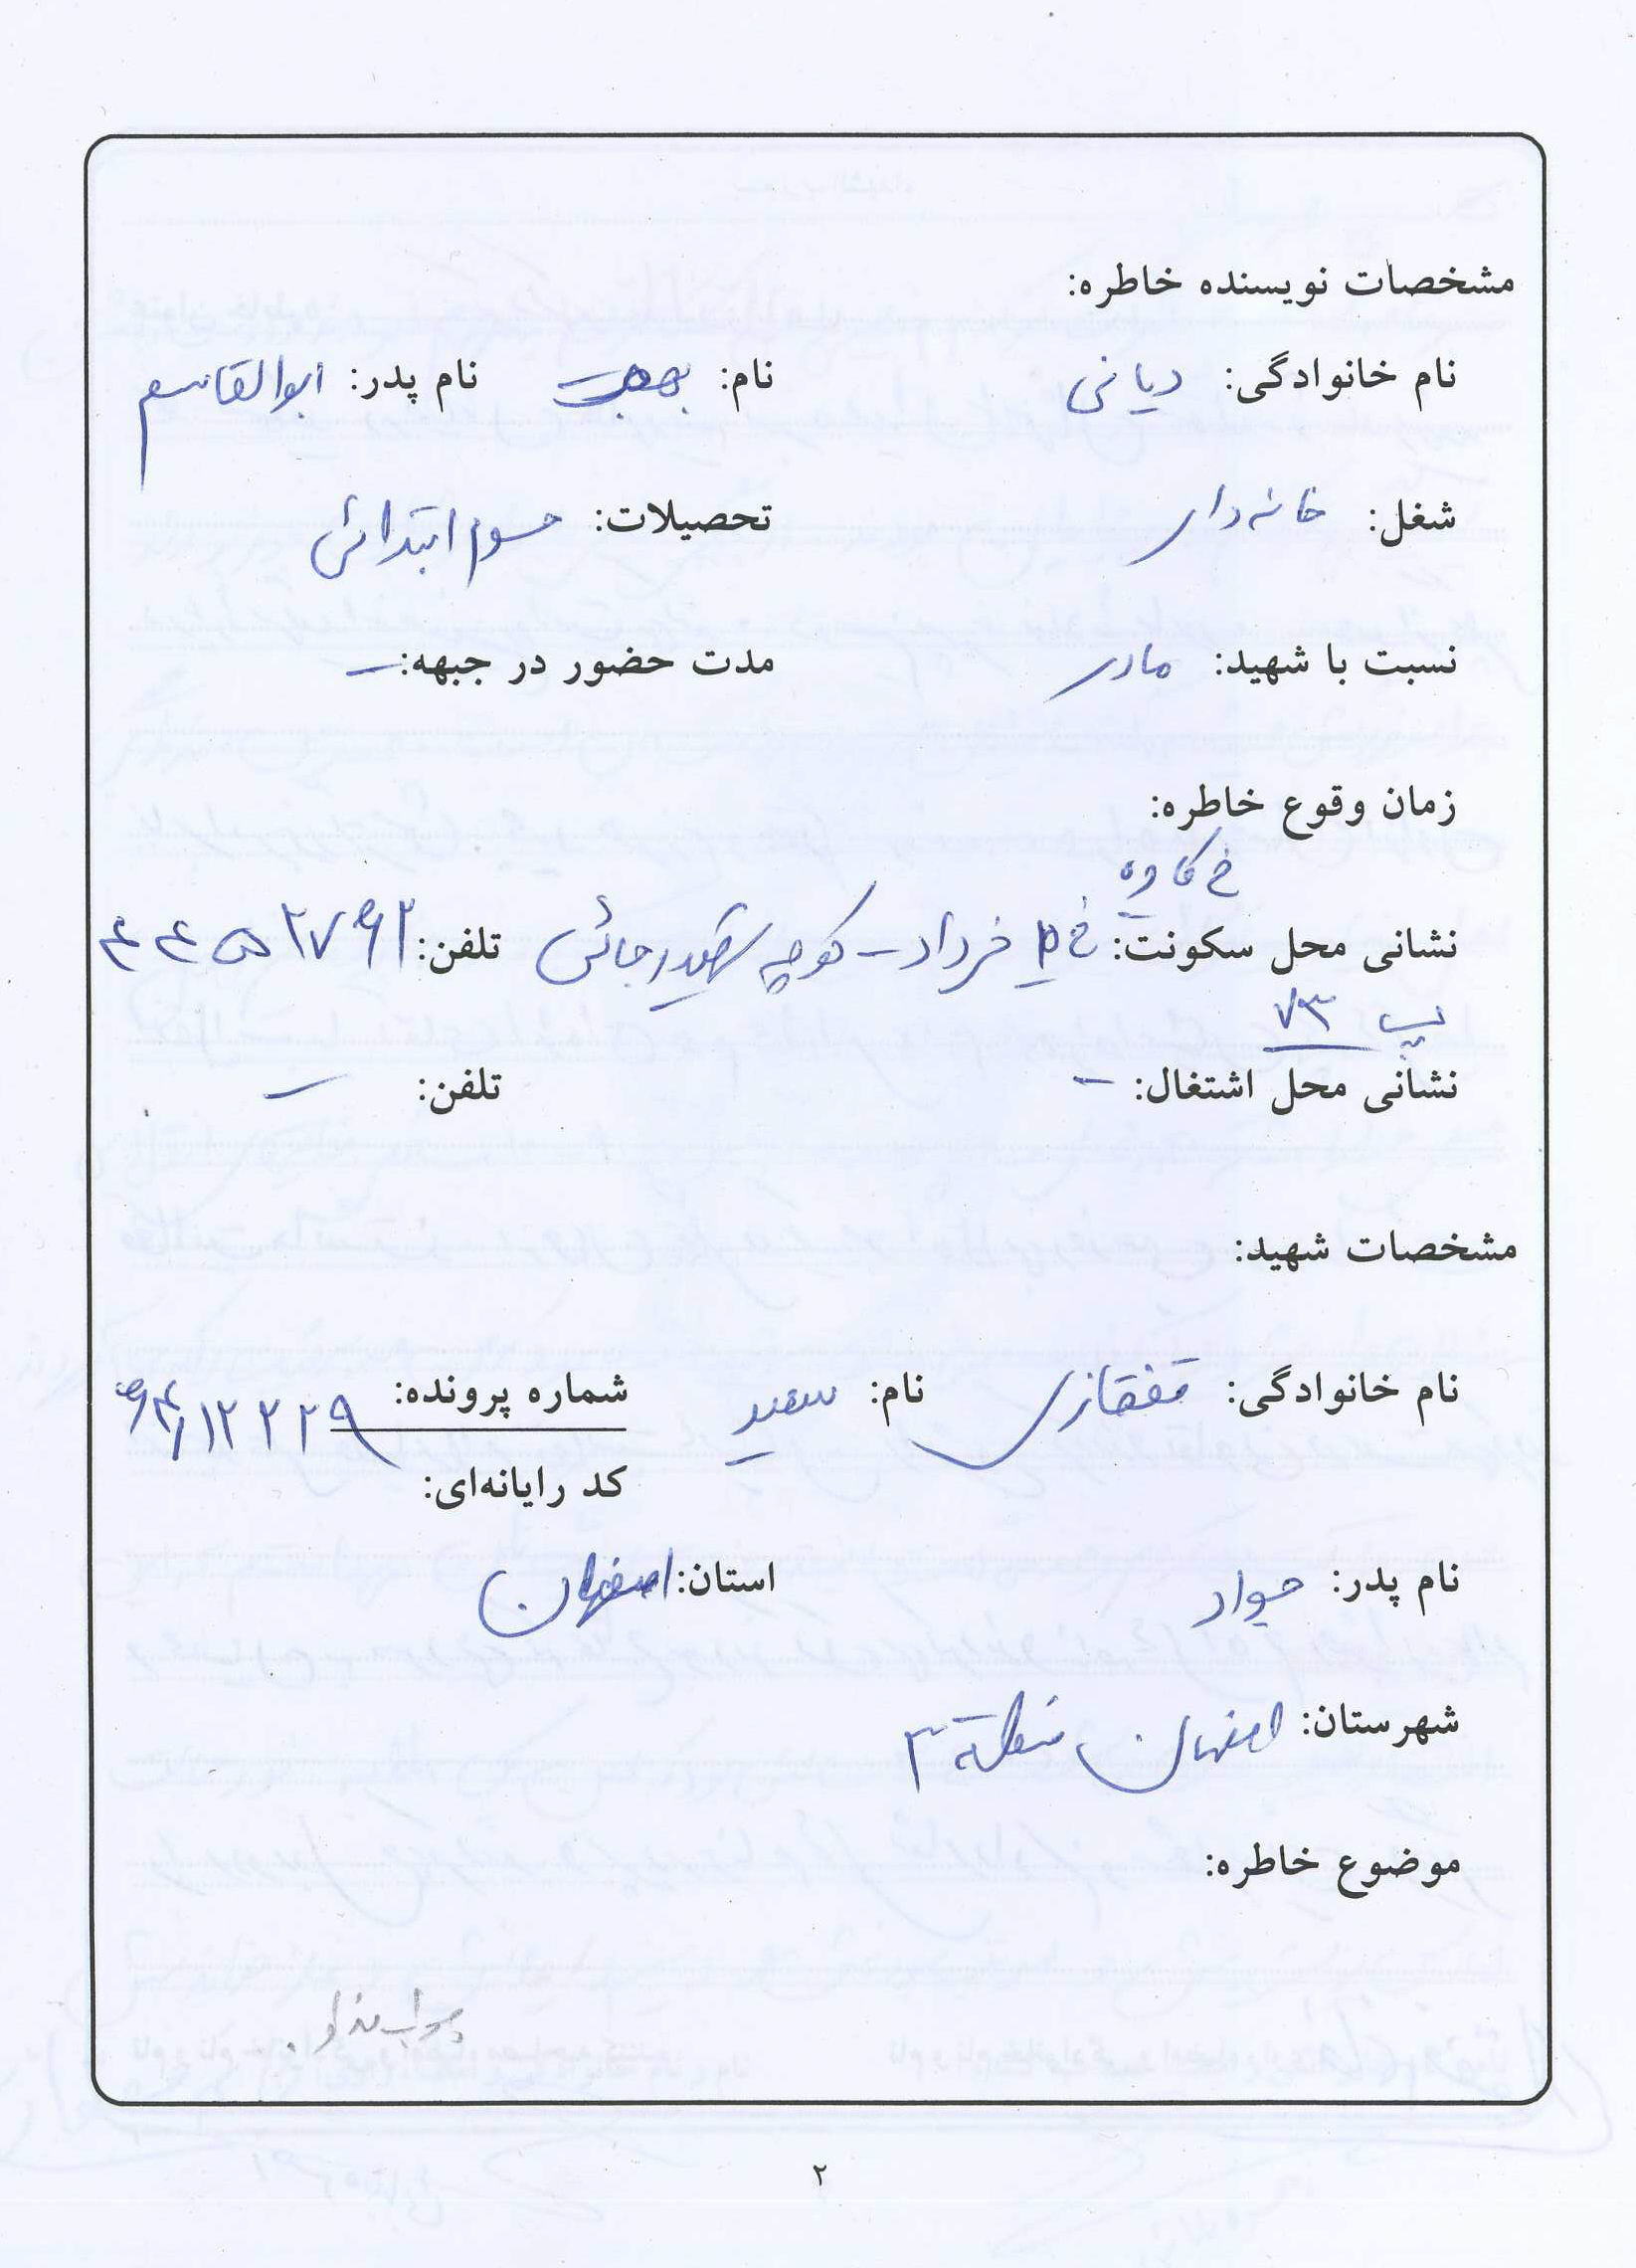 مشخصات نویسنده خاطره:
نام خانوادگی: دیانی نام: بهجت نام پدر: ابوالقاسم
شغل: خانه دار تحصیلات: سوم ابتدائی
نسبت با شهید: مادر مدت حضور در جبهه: –
زمان وقوع خاطره:
خ کاوه
نشانی محل سکونت: خ خرداد – کوچه شهید رجائی تلفن:
پ ۷۳
نشانی محل اشتغال: – تلفن: –
مشخصات شهید:
نام خانوادگی: قفقازی نام: سعید شماره پرونده:
کد رایانه‌ای:
نام پدر: جواد استان: اصفهان
شهرستان: اصفهان منطقه ۳
موضوع خاطره:
۲